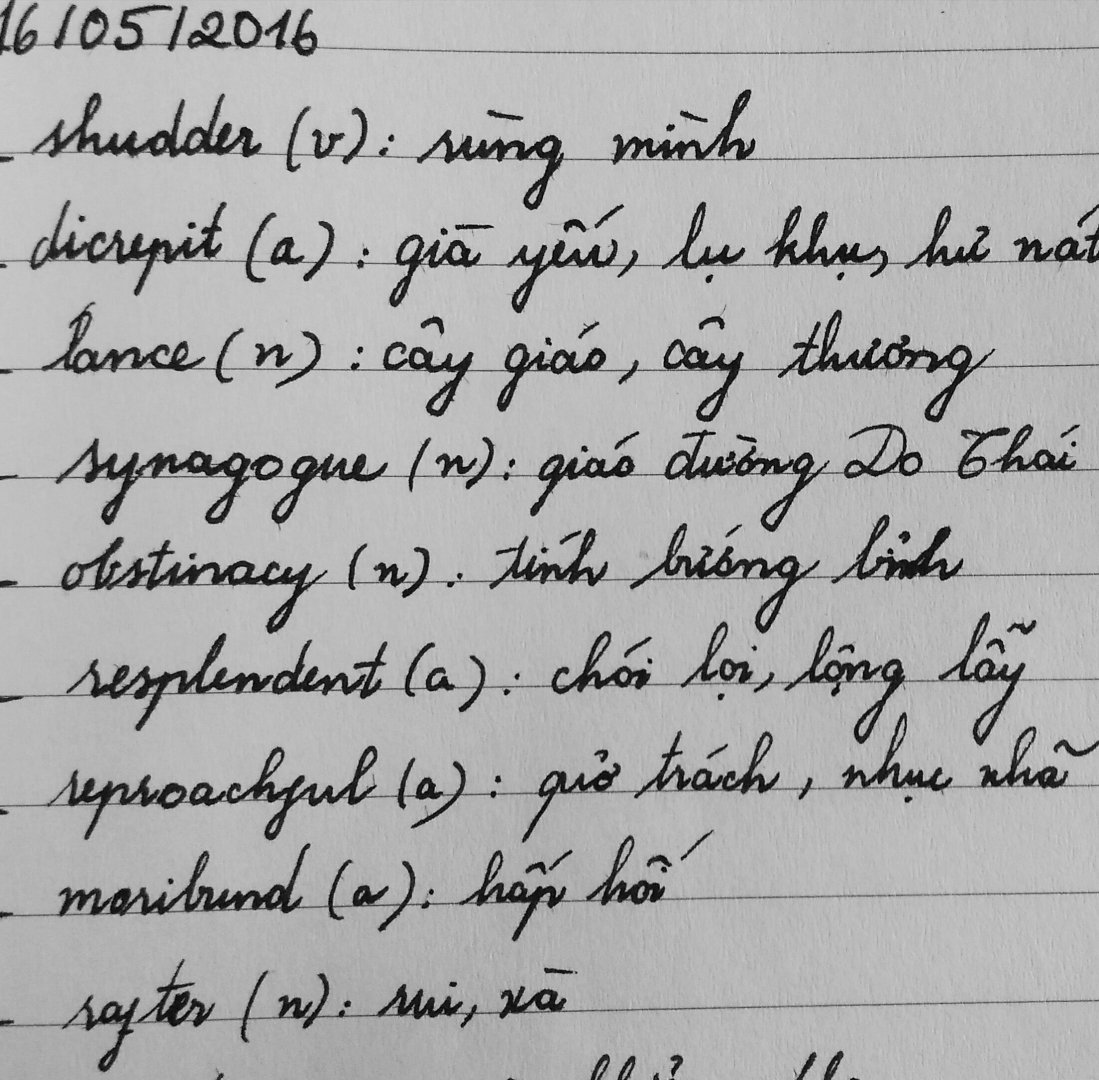 16/05/2016
- shudder (v): rùng mình
- dicrepit (a): già yếu, lụ khụ, hư nát
- lance (n): cây giáo, cây thương
- synagogue (n): giáo đường Do Thái
- obstinacy (n): tính bướng bỉnh
- resplendent (a): chói lọi, lộng lẫy
- reproachful (a): quở trách, nhục nhã
- moribund (a): hấp hối
- rafter (n): rui, xà